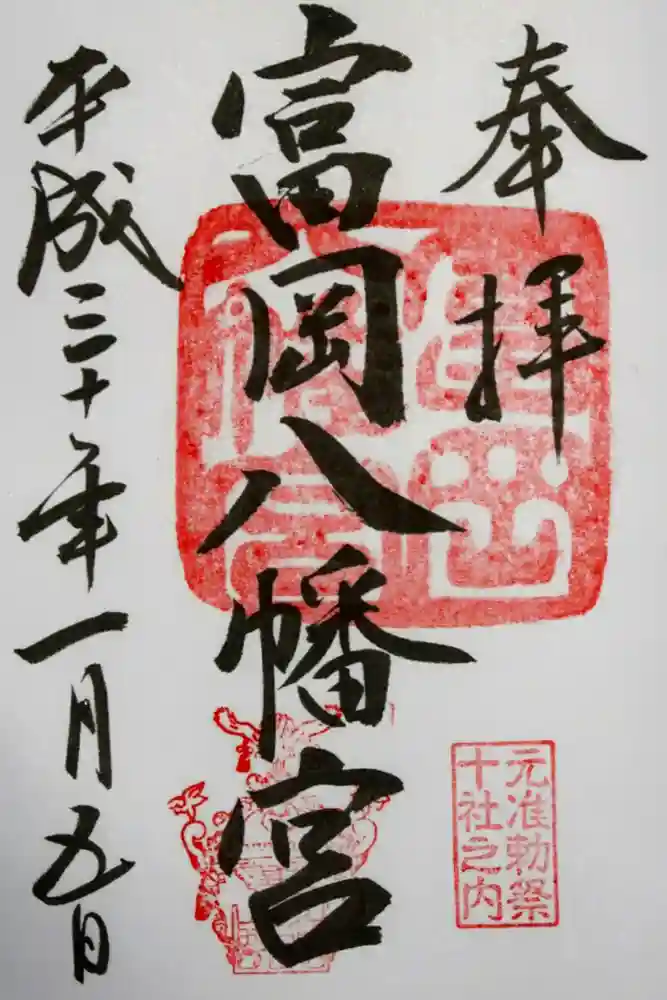 奉拝
富岡八幡宮
平成三十年一月五日
元准勅祭
十社之内